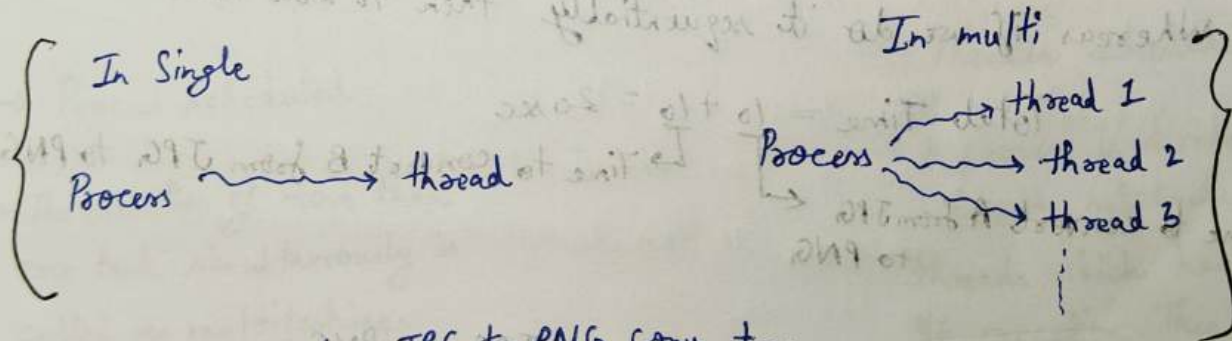 In Single
Process → thread
In multi
Process → thread 1
→ thread 2
→ thread 3
JPG to PNG